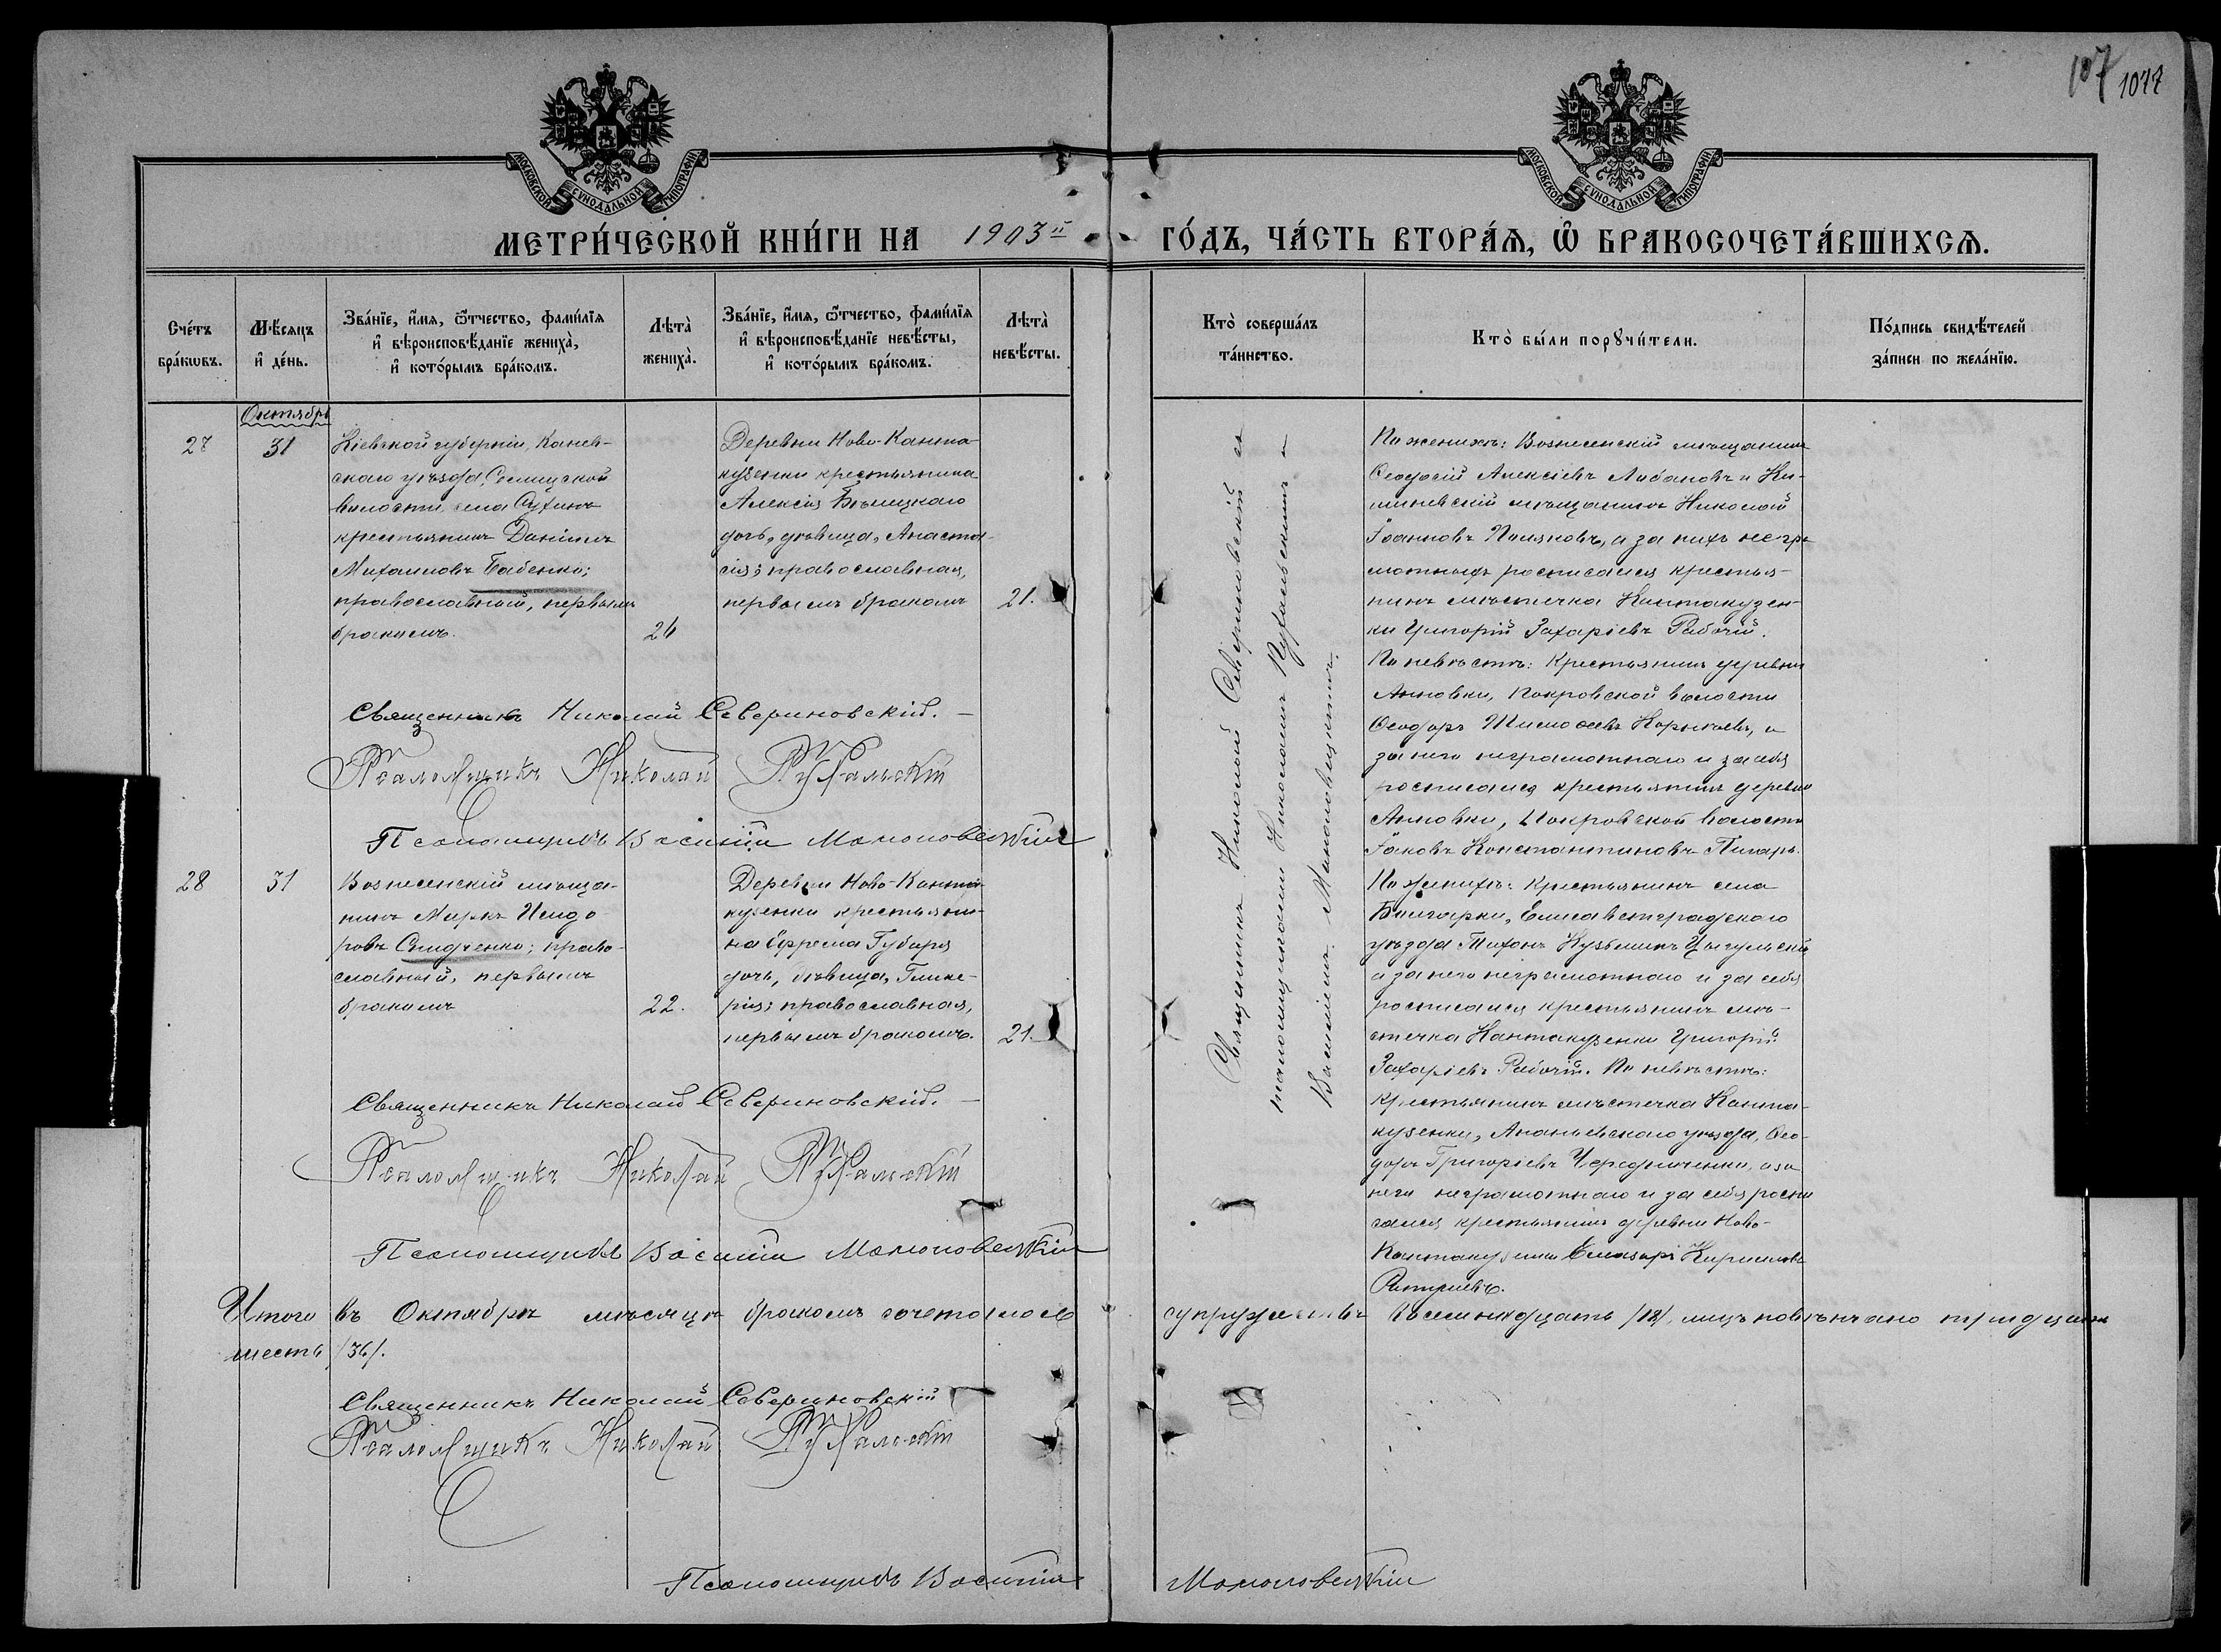 107 1077
МОСКОВСКОЙ СУНОДАЛЬНОЙ ТИПОГРАФІИ
МОСКОВСКОЙ СУНОДАЛЬНОЙ ТИПОГРАФІИ
МЕТРИ́ЧЕСКОЙ КНИ́ГИ НА 1903й ГО́ДЪ, ЧА́СТЬ ВТОРА́Я, Ѡ҆ БРАКОСОЧЕТА́ВШИХСѦ.
Сче́тъ бра́кѡвъ.
Мѣ́сяцъ и҆ де́нь.
Зва́нїе, и҆́мѧ, ѻ҆́тчество, фами́лїѧ и҆ вѣроисповѣ́данїе жениха̀, и҆ кото́рымъ бра́комъ.
Лѣта̀ жениха̀.
Зва́нїе, и҆́мѧ, ѻ҆́тчество, фами́лїѧ и҆ вѣроисповѣ́данїе невѣ́сты, и҆ кото́рымъ бра́комъ.
Лѣта̀ невѣ́сты.
Кто̀ соверша́лъ та́инство.
Кто̀ бы́ли порꙋчи́тели.
По́дпись свидѣ́телей за́писи по жела́нїю.
Октябрь
27
31
Кіевской губерніи, Канев-
скаго уѣзда,
волости, села
крестьянинъ Даніилъ
Михаиловъ Бабенко;
православный, первымъ
бракомъ.
26
Деревни Ново-Канта-
кузенки крестьянина
Алексія Бѣлицкаго
дочь, дѣвица, Анаста-
сія; православная,
первымъ бракомъ
21.
Священникъ Николай Севериновскій съ
псаломщиками Николаемъ Пухальскимъ и
Василіемъ Маноловецкимъ.
По женихѣ: Вознесенскій мѣщанинъ
Ѳеодосій Алексіевъ Либановъ и Ки-
шиневскій мѣщанинъ Николай
Іоанновъ Поляковъ, а за нихъ негра
мотныхъ росписался крестья-
нинъ мѣстечка Кантакузен-
ки Григорій Захаріевъ Рабочій.
По невѣстѣ: Крестьянинъ деревни
Анновки, Покровской волости
Ѳеодоръ Тимоѳеевъ, а
за него неграмотнаго и за себя
росписался крестьянинъ деревни
Анновки, Покровской волости
Іаковъ Константиновъ Пигарь.
Священникъ Николай Севериновскій.
Псаломщикъ Николай Пухальскій
Псаломщикъ Василій Маноловецкій
28
31
Вознесенскій мѣща-
нинъ Маркъ Исидо-
ровъ право-
славный, первымъ
бракомъ
22.
Деревни Ново-Канта-
кузенки крестьяни-
на Ефрема Губаря
дочь, дѣвица, Глике-
рія; православная,
первымъ бракомъ.
21.
По женихѣ: Крестьянинъ села
Болгарки, Елисаветградскаго
уѣзда Тихонъ Кузьминъ
а за него неграмотнаго и за себя
росписался крестьянинъ мѣ-
стечка Кантакузенки Григорій
Захаріевъ Рабочій. По невѣстѣ:
крестьянинъ мѣстечка Канта-
кузенки, Ананьевскаго уѣзда, Ѳео-
доръ Григоріевъ Чередниченко, а за
него неграмотнаго и за себя роспи
сался крестьянинъ деревни Ново-
Кантакузенки Елеазаръ Кирилловъ
Священникъ Николай Севериновскій.
Псаломщикъ Николай Пухальскій
Псаломщикъ Василій Маноловецкій
Итого въ Октябрѣ мѣсяцѣ бракомъ сочеталось супружествъ восемнадцать /18/, лицъ повѣнчано тридцать
шесть /36/.
Священникъ Николай Севериновскій
Псаломщикъ Николай Пухальскій
Псаломщикъ Василій Маноловецкій